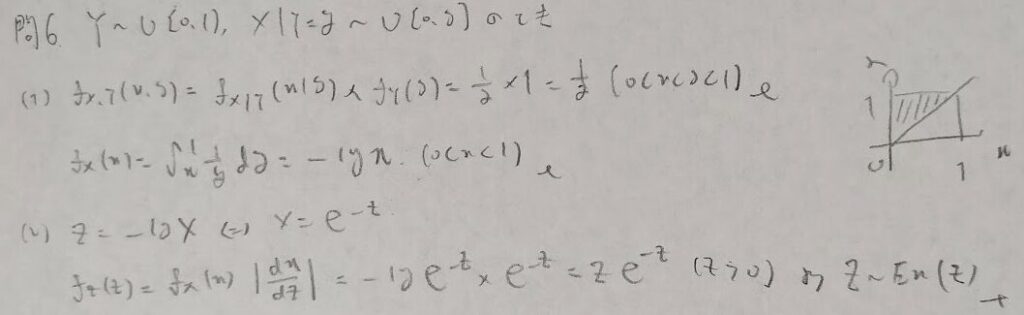 問6 Y~U[0,1), X|Y=y~U[0,y] のとき
(1) fx,Y(x,y) = fx|Y(x|y) × fy(y) = 1/y × 1 = 1/y (0<x<y<1)
fx(x) = ∫x^1 1/y dy = -log x. (0<x<1)
(2) Z = -log X ⇔ X = e^-z
fz(z) = fx(x) |dx/dz| = -log e^-z × e^-z = z e^-z (z>0)
y
1
0
1
x